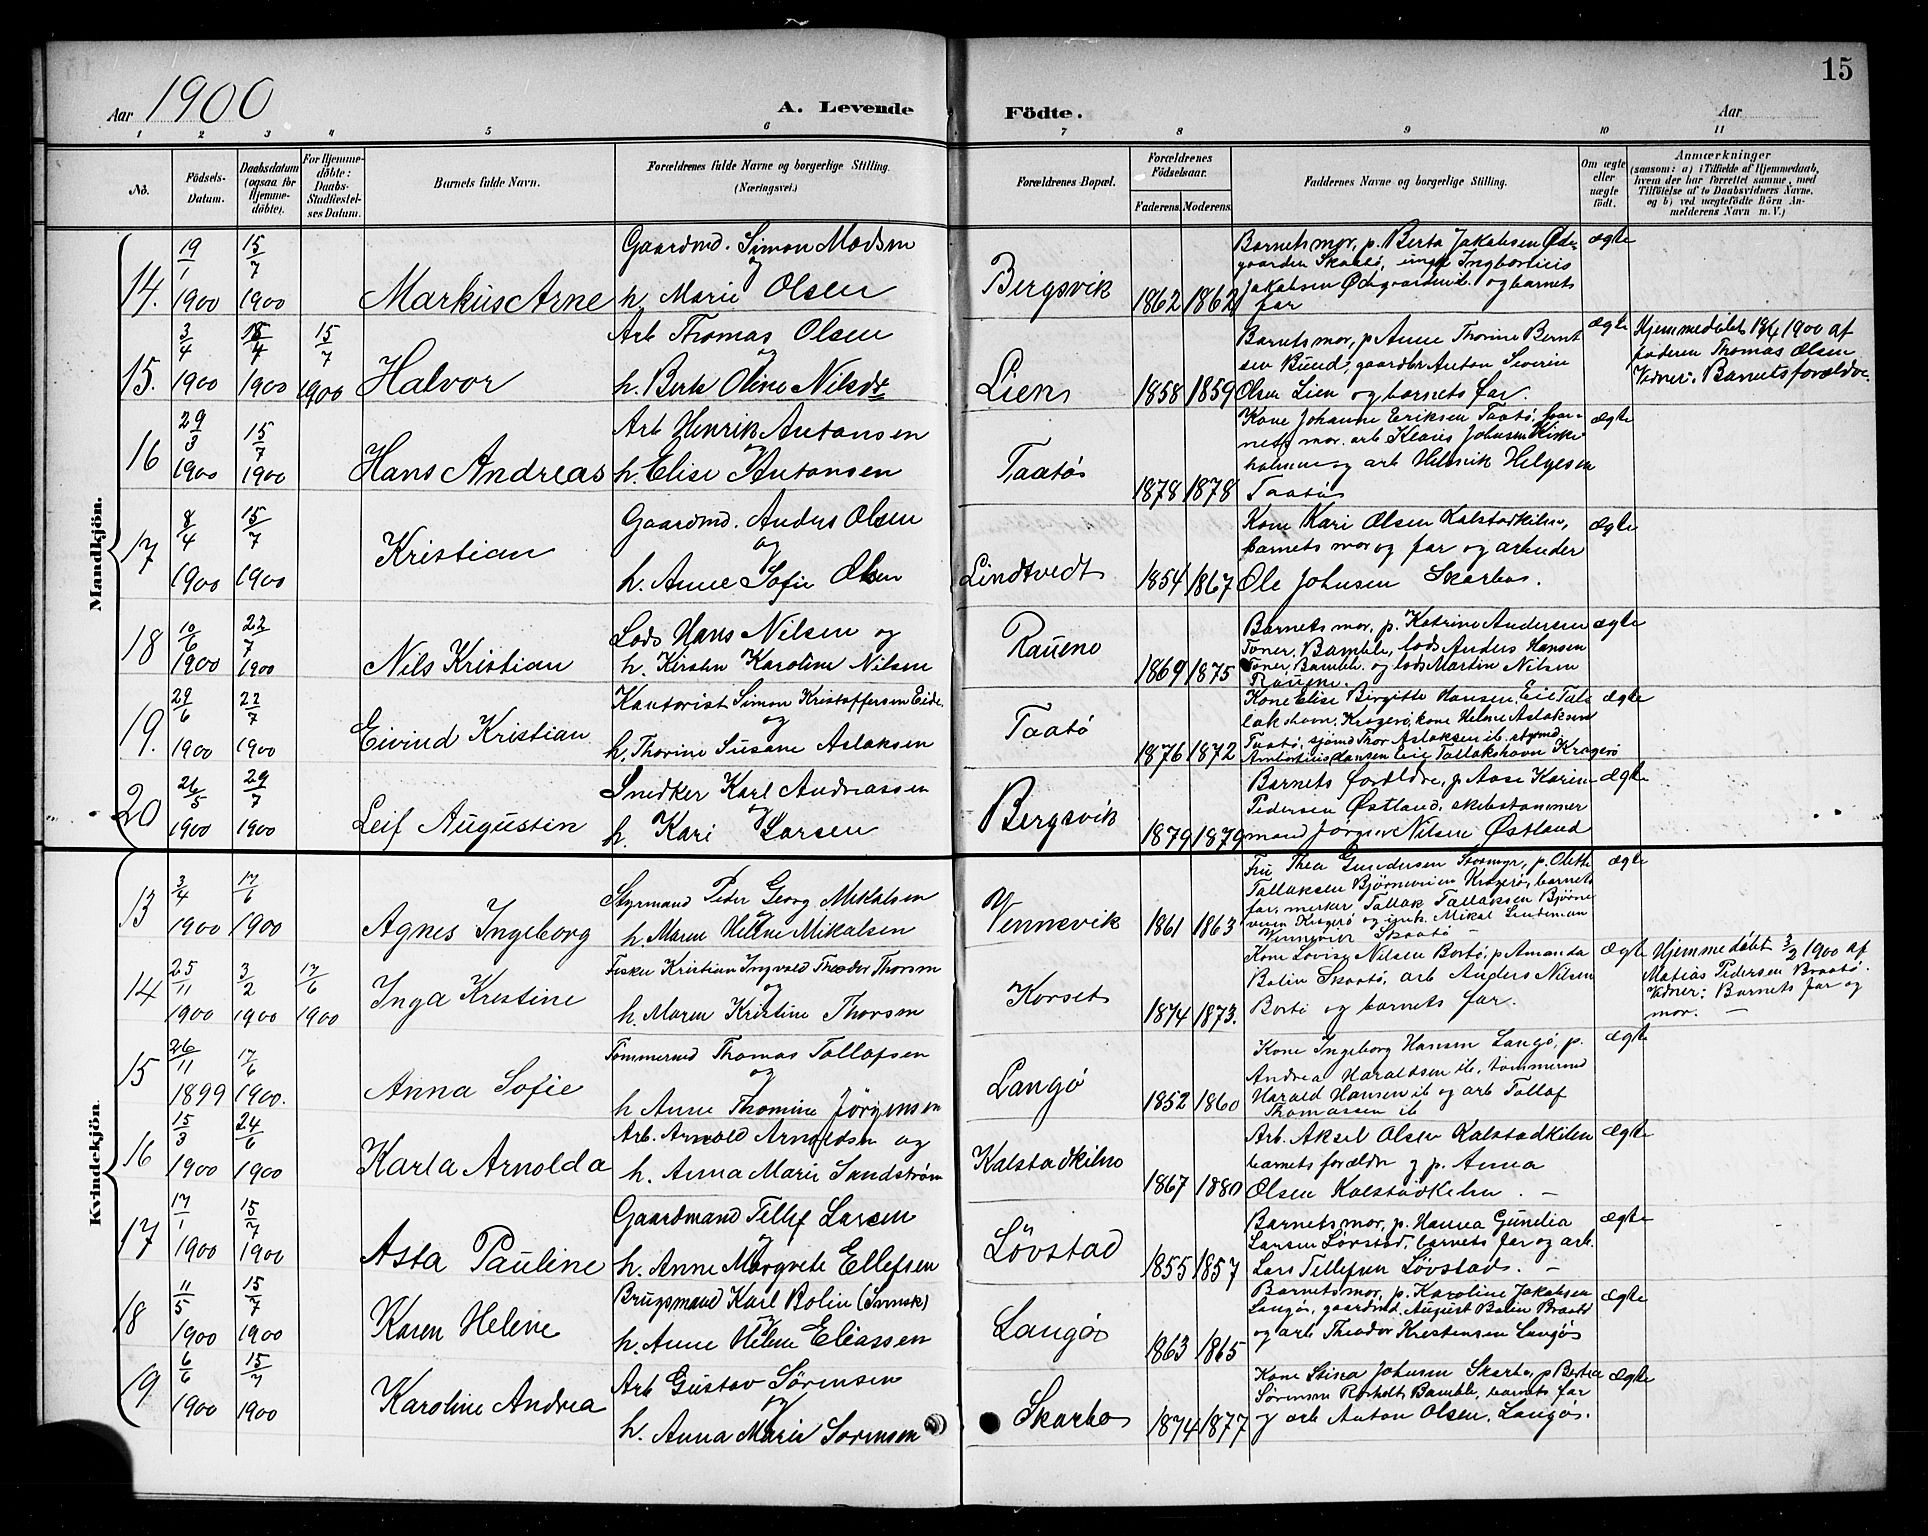 15
Aar 1900
A. Levende
Födte.
Aar
1 2 3 4 5 6 7 8 9 10 11
No.
Födsels-Datum.
Daabsdatum (ogsaa for Hjemme-döbte).
For Hjemme-döbte: Daabs-Stadfæstel-ses Datum.
Barnets fulde Navn.
Forældrenes fulde Navne og borgerlige Stilling. (Næringsvei.)
Forældrenes Bopæl.
Forældrenes Födselsaar.
Faderens. Moderens.
Faddernes Navne og borgerlige Stilling.
Om ægte eller uægte født.
Anmærkninger
(saasom: a) i Tilfælde af Hjemmedaab, hvem der har forrettet samme, med Tilföielse af to Daabsvidners Navne, og b) ved uægtefödte Börn An-melderens Navn m. V.)
Mandkjön.
14. 19/1 1900 15/7 1900 Markus Arne
Gaardmd. Simon Madsen
og
h. Marie Olsen
Bergsvik 1862 1862
Barnets mor, p. Berta Jakobsen Øde-
gaarden Skaatø,
Jakobsen Ødegaarden ib. og barnets
far
ægte
15. 3/4 1900 18/4 1900 15/7 1900 Halvor
Arb Thomas Olsen
og
h. Berte Oline Nilsdr
Lien 1858 1859
Barnets mor, p Anne Thorine Bernt
sen Rund, gaardbr Anton Severin
Olsen Lien og barnets far.
ægte
Hjemmedøbt 18/4 1900 af
faderen Thomas Olsen
Vidner: Barnets forældre.
16 29/3 1900 15/7 1900 Hans Andreas
Arb Henrik Antonsen
og
h. Elise Antonsen
Taatø 1878 1878
Kone Johanne Eriksen Taatø, bar-
nets mor, arb Johnsen Kirke
holmen og arb Helgesen
Taatø
ægte
17 8/4 1900 15/7 1900 Kristian
Gaardmd. Anders Olsen
og
h. Anne Sofie Olsen
Lindtvedt 1854 1867
Kone Kari Olsen Kalstadkilen,
barnets mor og far og arbeider
Ole Johnsen Skarbo.
ægte
18 10/6 1900 22/7 1900 Nils Kristian
Lods Hans Nilsen og
h. Kirsten Karoline Nilsen
Rauene 1869 1875
Barnets mor, p. Katrine Andersen
Toner, Bamble, lods Anders Hansen
Toner, Bamble. og lods Martin Nilsen
Rauene.
ægte
19. 29/6 1900 22/7 1900 Eivind Kristian
Kontorist Simon Kristoffersen Eide
og
h. Thorine Susane Aslaksen
Taatø 1876 1872
Kone Elise Birgitte Hansen, Eie Tal-
lakshavn, Kragerø, kone Helene Aslaksen
Taatø, sjømd Thor Aslaksen ib. styrmd
Hansen Eie Tallakshavn Kragerø
ægte
20 26/5 1900 29/7 1900 Leif Augustin
Snedker Karl Andreassen
og
h. Kari Larsen
Bergsvik 1879 1879
Barnets forældre, p. Aase Karine
Pedersen Østland, skibstømmer
mand Jørgen Nilsen Østland
ægte
Kvindekjön.
13 3/4 1900 17/6 1900 Agnes Ingeborg
Styrmand Peder Georg Mikalsen
og
h Maren Helene Mikalsen
Vennevik 1861 1863
Fru Thea Gundersen Stosmyr, p. Olette
Tallaksen Bjørneveien Kragerø, barnets
far, merker Tallak Tallaksen Bjørne
veien Kragerø og Mikal Lindeman
Skaatø
ægte
14 25/11 1900 3/2 1900 17/6 1900 Inga Kristine
Fisker Kristian Ingvald Theodor Thorsen
og
h. Maren Kristine Thorsen
Korset 1874 1873.
Kone Lovise Nilsen Bortø, p Amanda
Bolin Skaatø, arb Anders Nilsen
Bortø og barnets far.
ægte
Hjemmedøbt 3/2 1900 af
Matias Pedersen Braatø.
Vidner: Barnets far og
mor. —
15 26/11 1899 17/6 1900. Anna Sofie
Tømmermd Thomas Tollofsen
og
h Anne Thomine Jørgensen
Langø 1852 1860
Kone Ingeborg Hansen Langø, p.
Andrea Haraldsen ib, tømmermd
Harald Hansen ib og arb Tollof
Thomassen ib
ægte
16 15/3 1900 24/6 1900 Karla Arnolda
Arb. Arnold Arnoldsen og
h. Anna Marie Sandstrøm
Kalstadkilen 1867 1880
Arb. Aksel Olsen Kalstadkilen
barnets forældre og p. Anna
Olsen Kalstadkilen. —
ægte
17 17/1 1900 15/7 1900 Asta Pauline
Gaardmand Tellef Larsen
og
h. Anne Margrete Ellefsen
Løvstad 1855 1857
Barnets mor, p. Hanna Gunelia
Larsen Løvstad, barnets far og arb.
Lars Tellefsen Løvstad. —
ægte
18 11/5 1900 15/7 1900 Karen Helene
Brugsmand Karl Bolin (Svensk)
og
h. Anne Helene Eliassen
Langø 1863 1865
Barnets mor, p. Karoline Jakobsen
Langø, gaardmd. August Bolin Braatø
og arb Theodor Kristensen Langø
ægte
19. 6/6 1900 15/7 1900 Karoline Andrea
Arb Gustav Sørensen
og
h. Anna Marie Sørensen
Skarbo 1874 1877
Kone Stina Johnsen Skarbo, p Bertea
Sørensen Bamble, barnets far
og arb Anton Olsen, Langø.
ægte